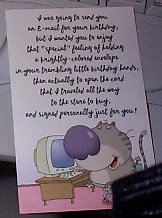 I was going to send you
an E-mail for your birthday,
but I wanted you to enjoy
that "special" feeling of holding
a brightly-colored envelope
in your trembling little birthday hands,
then actually to open the card
that I traveled all the way
to the store to buy,
and signed personally just for you!